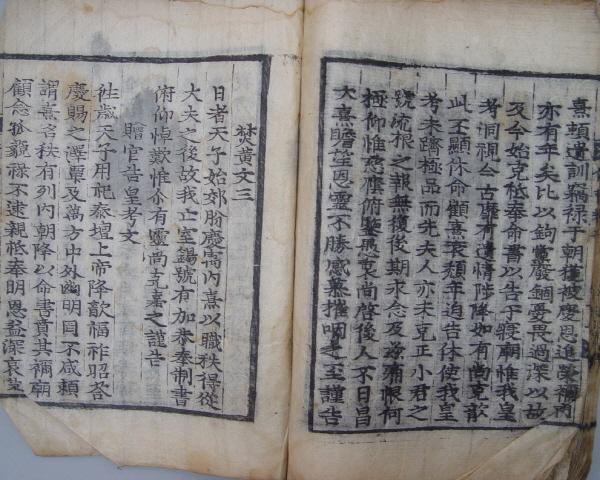 熹賴遺訓竊祿于朝獲被慶恩進榮禰
亦有年矣比以鉤黨嚴錮憂畏過深以故
及今始克祗奉命書以告于寢廟惟我皇
考洞視今古靡有遺情陟降如有尚克歆
此丕顯休命顧熹衰頽年迫告休使我皇
考未躋極品而先夫人亦未克正小君之
號流根之報無復後期永念及茲痛恨何
極仰惟慈廕俯鑒愚衷尚啓後人不日昌
大熹瞻望恩靈不勝感慕摧咽之至謹告
焚黃文三
日者天子始郊肦慶寓內熹以職秩得從
大夫之後故我亡室錫號有加恭奉制書
俯仰悼歎惟尒有靈尚克嘉之謹告
贈官告皇考文
往歲天子用祀泰壇上帝降歆福祚昭荅
慶賜之澤覃及萬方中外幽明罔不咸賴
謂熹名秩有列內朝降以命書賁其禰廟
顧念祿不逮親祗奉明恩益深哀